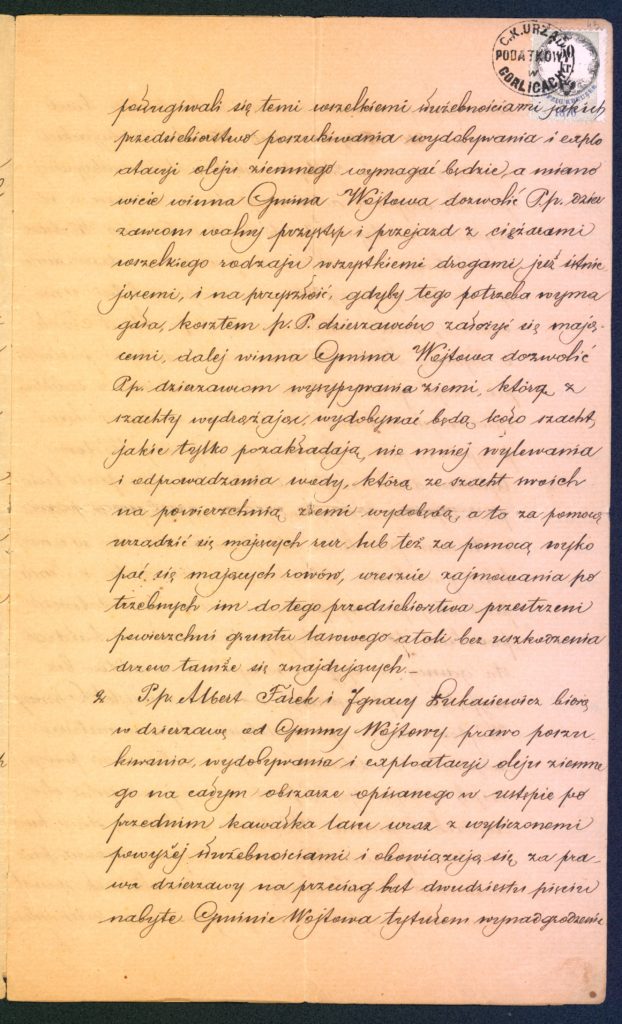 C.K. URZĄD
PODATKOWY
W
GORLICACH
posługiwali się temi wszelkiemi służebnościami jakich
przedsiębiorstwo poszukiwania wydobywania i explo
atacyi oleju ziemnego wymagać będzie, a miano
wicie winna Gmina Wojtowa dozwolić P.p. dzier
zawcom wolny przystęp i przejazd z ciężarami
wszelkiego rodzaju wszystkiemi drogami, już istnie
jącemi, i na przyszłość, gdyby tego potrzeba wyma
gała, kosztem p. P. dzierzawców założyć się mają-
cemi, dalej winna Gmina Wojtowa dozwolić
P.p. dzierzawcom wysypywania ziemi, którą z
szachty wydrążając, wydobywać będą koło szacht,
jakie tylko pozakładają, nie mniej wylewania
i odprowadzania wody, którą ze szacht swoich
na powierzchnią ziemi wydobędą, a to za pomocą
urządzić się mających rur lub też za pomocą wyko
pać się mających rowów, wreszcie zajmowania po
trzebnych im do tego przedsiębiorstwa przestrzeni
powierzchni gruntu lasowego atoli bez uszkodzenia
drzew tamże się znajdujących.–
2 P.p. Albert Farek i Ignacy Łukasiewicz biorą
w dzierzawę od Gminy Wojtowy prawo poszu-
kiwania, wydobywania i exploatacyi oleju ziemne
go na całym obszarze opisanego w ustępie po
przednim kawałka lasu wraz z wyliczonemi
powyżej służebnościami i obowiązują się za pra-
wa dzierzawy na przeciąg lat dwudziestu pięciu
nabyte Gminie Wojtowa tytułem wynadgrodzenia